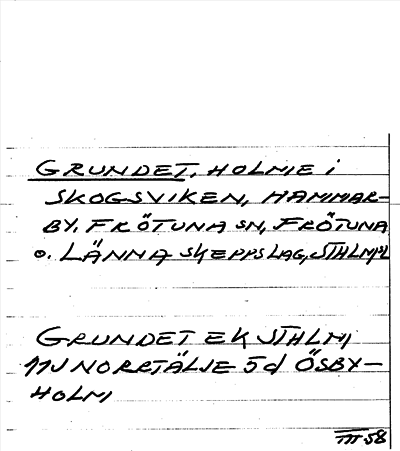 GRUNDET, HOLME i
SKOGSVIKEN, HAMMAR-
BY, FRÖTUNA SN, FRÖTUNA
o. LÄNNA SKEPPSLAG, STHLM:L
GRUNDET EK STHLM
11J NORRTÄLJE 5d ÖSBY-
HOLM
III 58